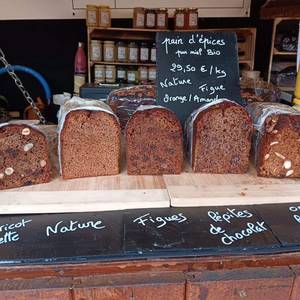 pain d'épices
pur miel Bio
29,50 € / kg
Nature Figue
Orange/Amande
Nature
Figues
Pépites
de
chocolat